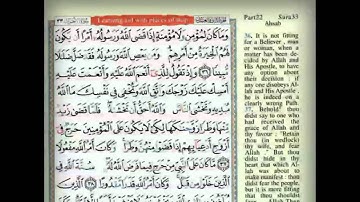 Learning aid with places of stop
وَمَا كَانَ لِمُؤْمِنٍ وَلَا مُؤْمِنَةٍ إِذَا قَضَى اللَّهُ وَرَسُولُهُ أَمْرًا أَن يَكُونَ
لَهُمُ الْخِيَرَةُ مِنْ أَمْرِهِمْ وَمَن يَعْصِ اللَّهَ وَرَسُولَهُ فَقَدْ ضَلَّ ضَلَالًا
مُّبِينًا ٣٦ وَإِذْ تَقُولُ لِلَّذِي أَنْعَمَ اللَّهُ عَلَيْهِ وَأَنْعَمْتَ عَلَيْهِ
أَمْسِكْ عَلَيْكَ زَوْجَكَ وَاتَّقِ اللَّهَ وَتُخْفِي فِي نَفْسِكَ مَا
اللَّهُ مُبْدِيهِ وَتَخْشَى النَّاسَ وَاللَّهُ أَحَقُّ أَن تَخْشَاهُ فَلَمَّا قَضَى زَيْدٌ
مِّنْهَا وَطَرًا زَوَّجْنَاكَهَا لِكَيْ لَا يَكُونَ عَلَى الْمُؤْمِنِينَ حَرَجٌ فِي
أَزْوَاجِ أَدْعِيَائِهِمْ إِذَا قَضَوْا مِنْهُنَّ وَطَرًا وَكَانَ أَمْرُ اللَّهِ مَفْعُولًا
٣٧ مَّا كَانَ عَلَى النَّبِيِّ مِنْ حَرَجٍ فِيمَا فَرَضَ اللَّهُ لَهُ سُنَّةَ اللَّهِ فِي
الَّذِينَ خَلَوْا مِن قَبْلُ وَكَانَ أَمْرُ اللَّهِ
Part22 Sura33
Ahsab
36. It is not fitting
for a Believer , man
or woman, when a
matter has been
decided by Allah
and His Apostle, to
have any option
about their decision :
if any one disobeys
Allah and His Apostle ,
he is indeed on a
clearly wrong Path.
37. Behold! thou
didst say to one who
had received the
grace of Allah and
thy favour : "Retain
thou (in wedlock)
thy wife, and fear
Allah." But thou
didst hide in thy
heart that which Allah
was about to make
manifest: thou didst
fear the people, but
it is more fitting that
thou shouldst fear
Allah. Then